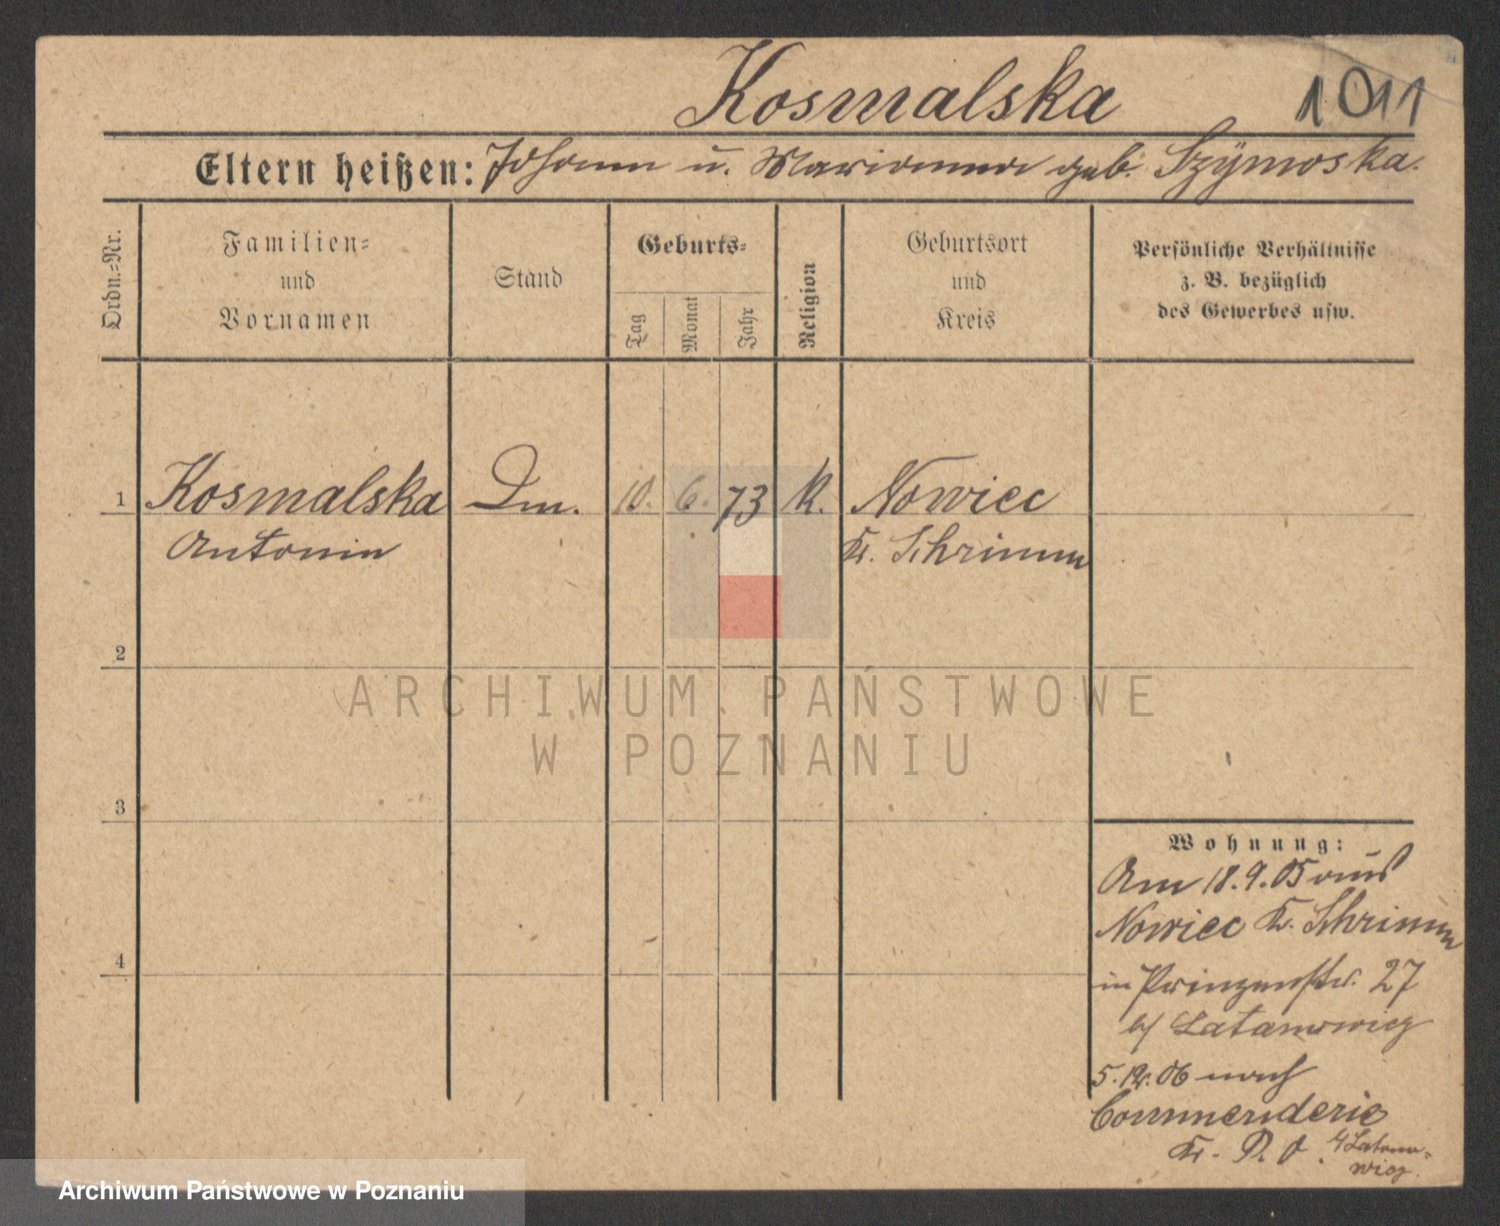 Kosmalska 1011
Eltern heißen: Johann u. Marianna geb. Szymoska.
Ordn.=Nr.
Familien=
und
Vornamen
Stand
Geburts=
Tag
Monat
Jahr
Religion
Geburtsort
und
Kreis
Persönliche Verhältnisse
z. B. bezüglich
des Gewerbes usw.
1 Kosmalska Dm. 10. 6. 73 K. Nowiec
Antonin Kr. Schrimm
2
ARCHIWUM PAŃSTWOWE
W POZNANIU
3
Wohnung:
Am 18.9.05 aus
Nowiec Kr. Schrimm
4
in Prinzenstr. 27
b/ Latanowicz
5.12.06 nach
Commenderie
Kr. P. O. b/ Latano=
wicz.
Archiwum Państwowe w Poznaniu